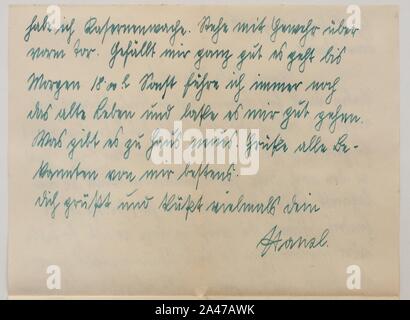 habe ich Kasernenwache. Stehe mit Gewehr über
vorm Tor. Gefällt mir ganz gut es geht bis
Morgen 18 00 h Sonst führe ich immer noch
das alte Leben und lasse es mir gut gehen.
Was gibt es zu Haus neues. Grüße alle Be-
kannten von mir bestens.
Dich grüßt und küßt vielmals dein
Hansl.
alamy
Image ID: 2A47AWK
www.alamy.com